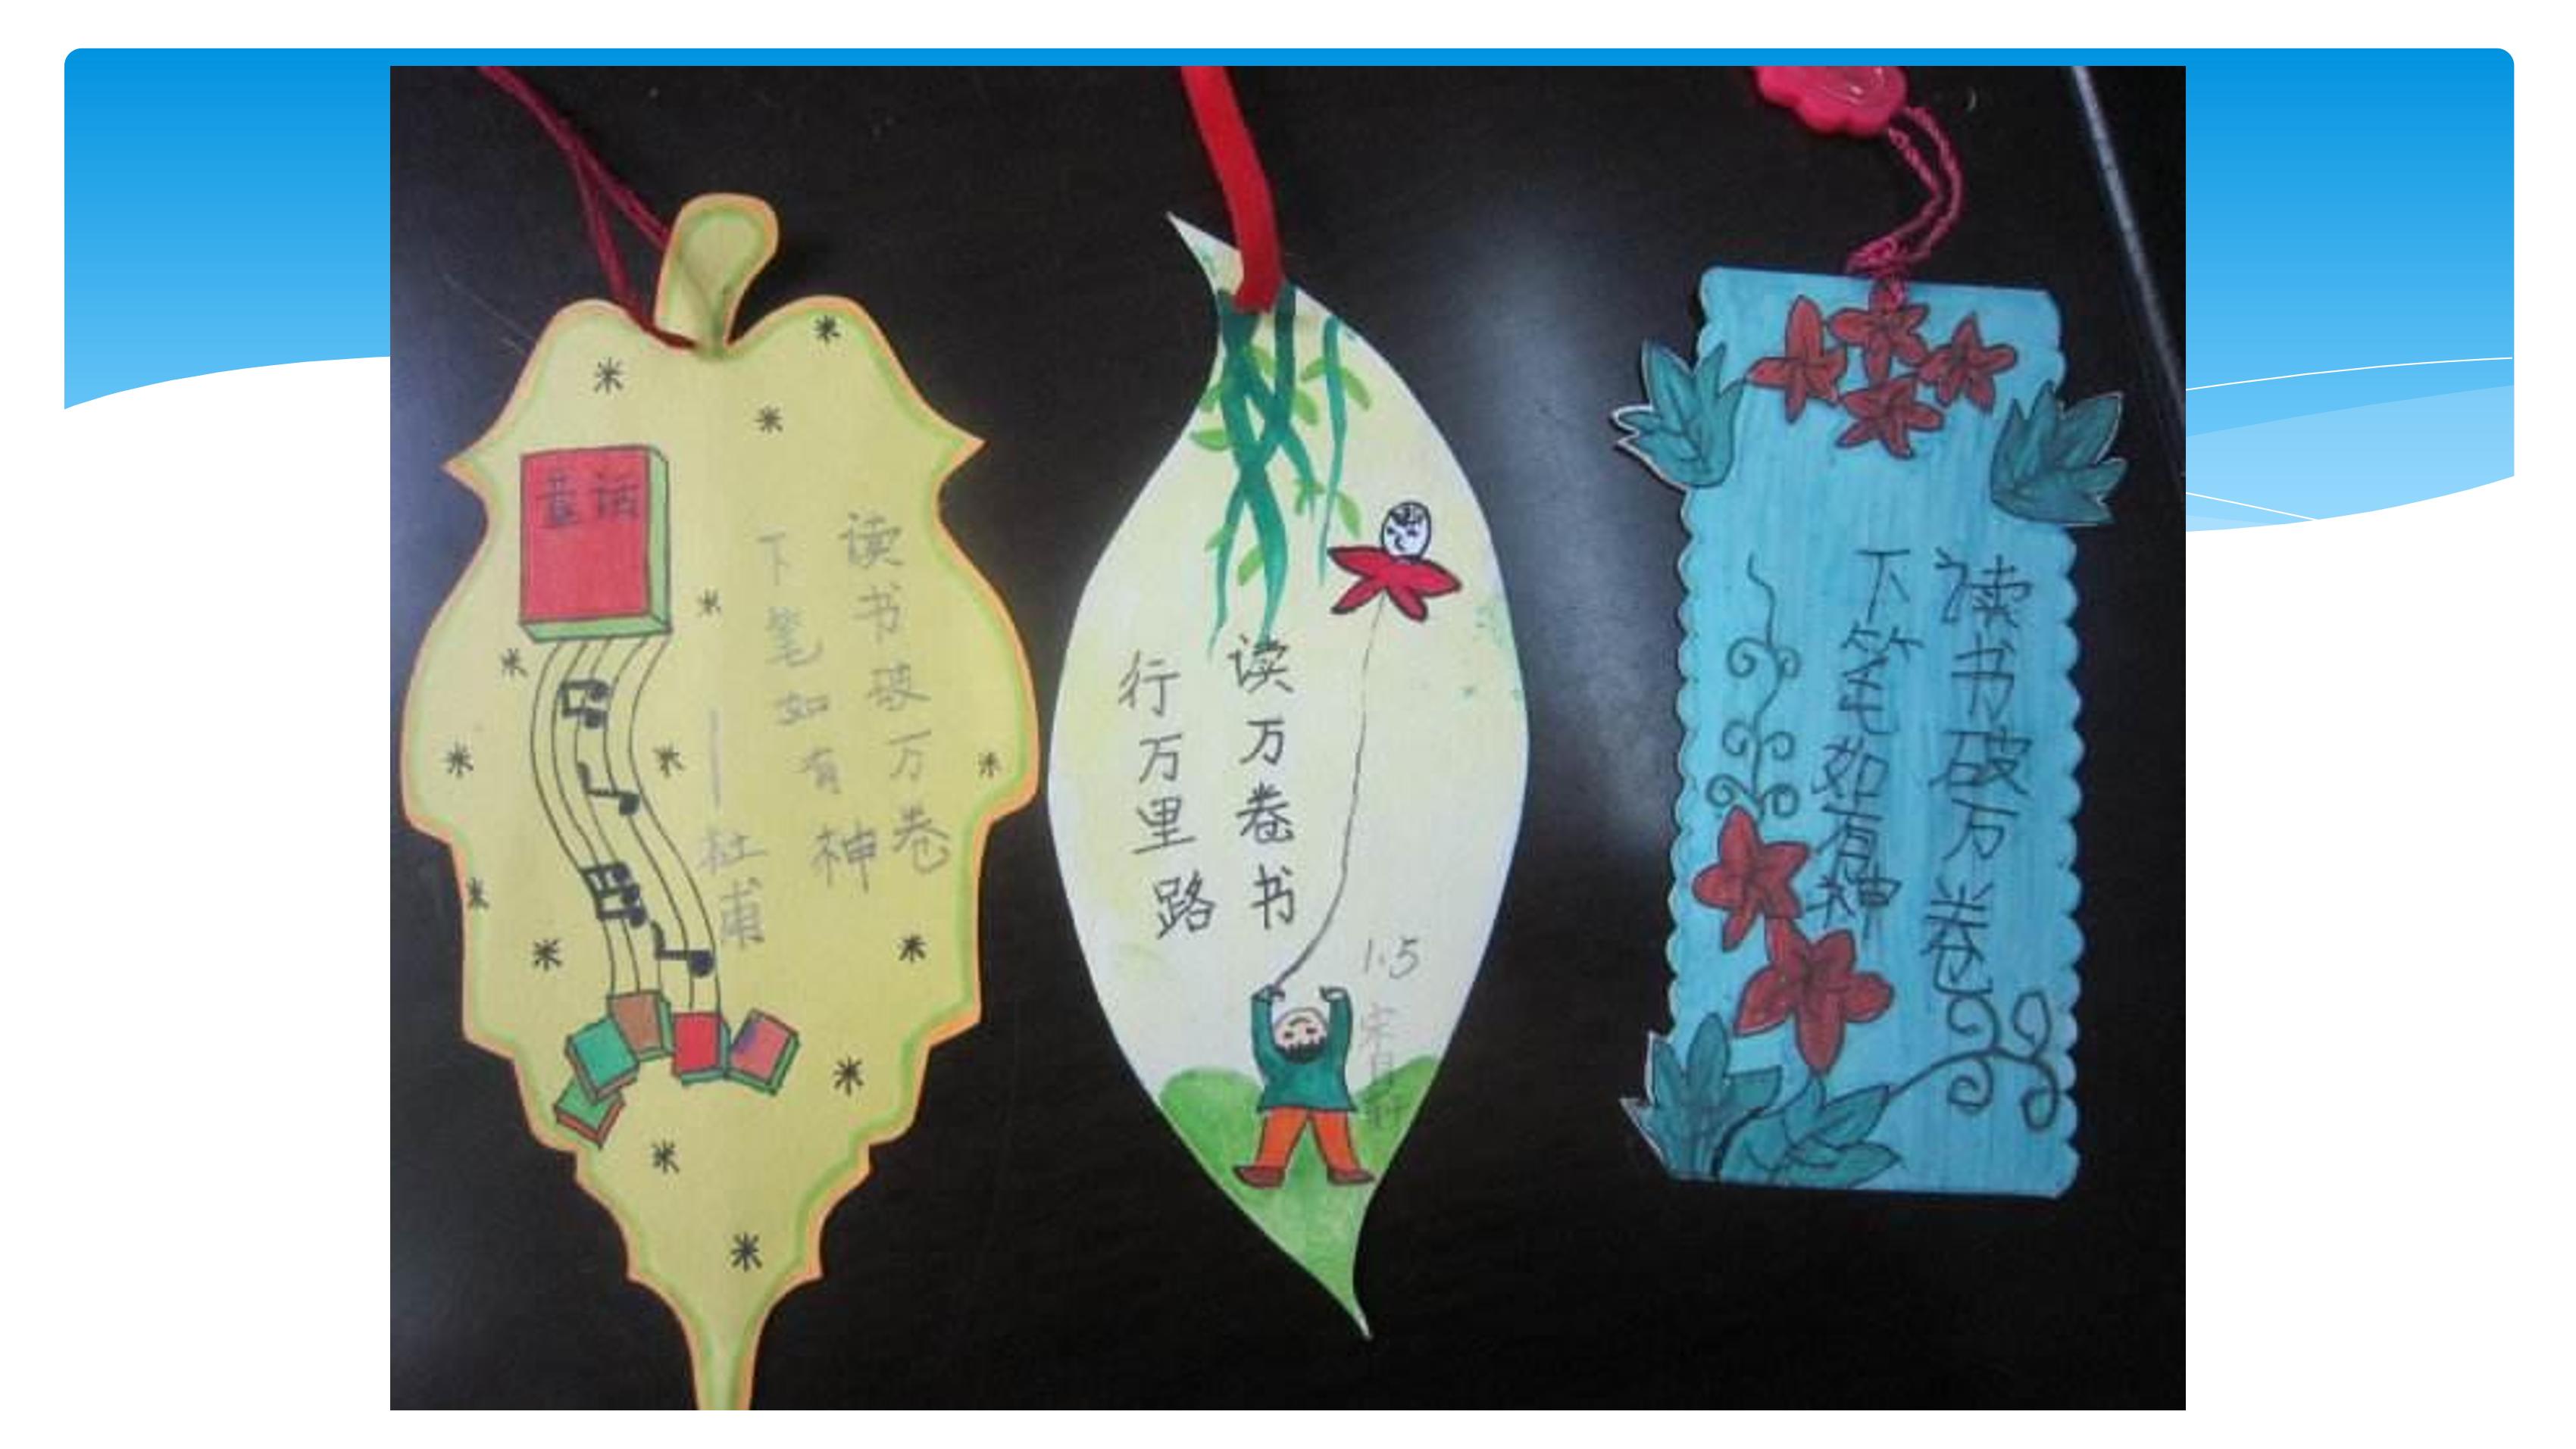 童话
读书破万卷
下笔如有神
——杜甫
读万卷书
行万里路
1.5
读书破万卷
下笔如有神